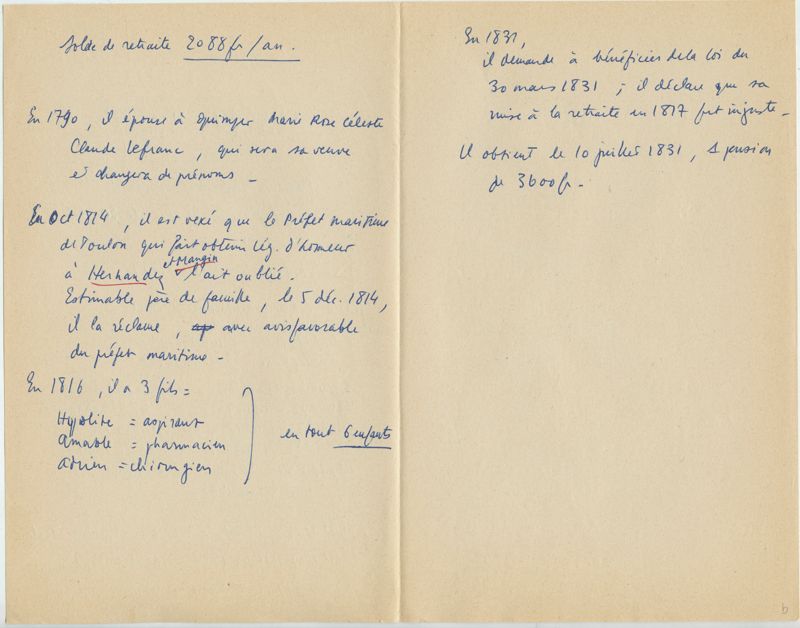 Solde de retraite 2088 fr/an.
En 1790, il épouse à Quimper Marie Rose Céleste
Claude Lefranc, qui sera sa veuve
et changera de prénoms _
En Oct 1814, il est vexé que le Préfet maritime
de Toulon qui fait obtenir Lég. d'honneur
et Mangin
à Hernandez l'ait oublié.
Estimable père de famille, le 5 déc. 1814,
il la réclame, avec avis favorable
du préfet maritime _
En 1816, il a 3 fils =
Hypolite = aspirant
Amable = pharmacien
Adrien = chirurgien
en tout 6 enfants
En 1831,
il demande à bénéficier de la loi du
30 mars 1831 ; il déclare que sa
mise à la retraite en 1817 fut injuste _
Il obtient le 10 juillet 1831, 1 pension
de 3600 fr _
b